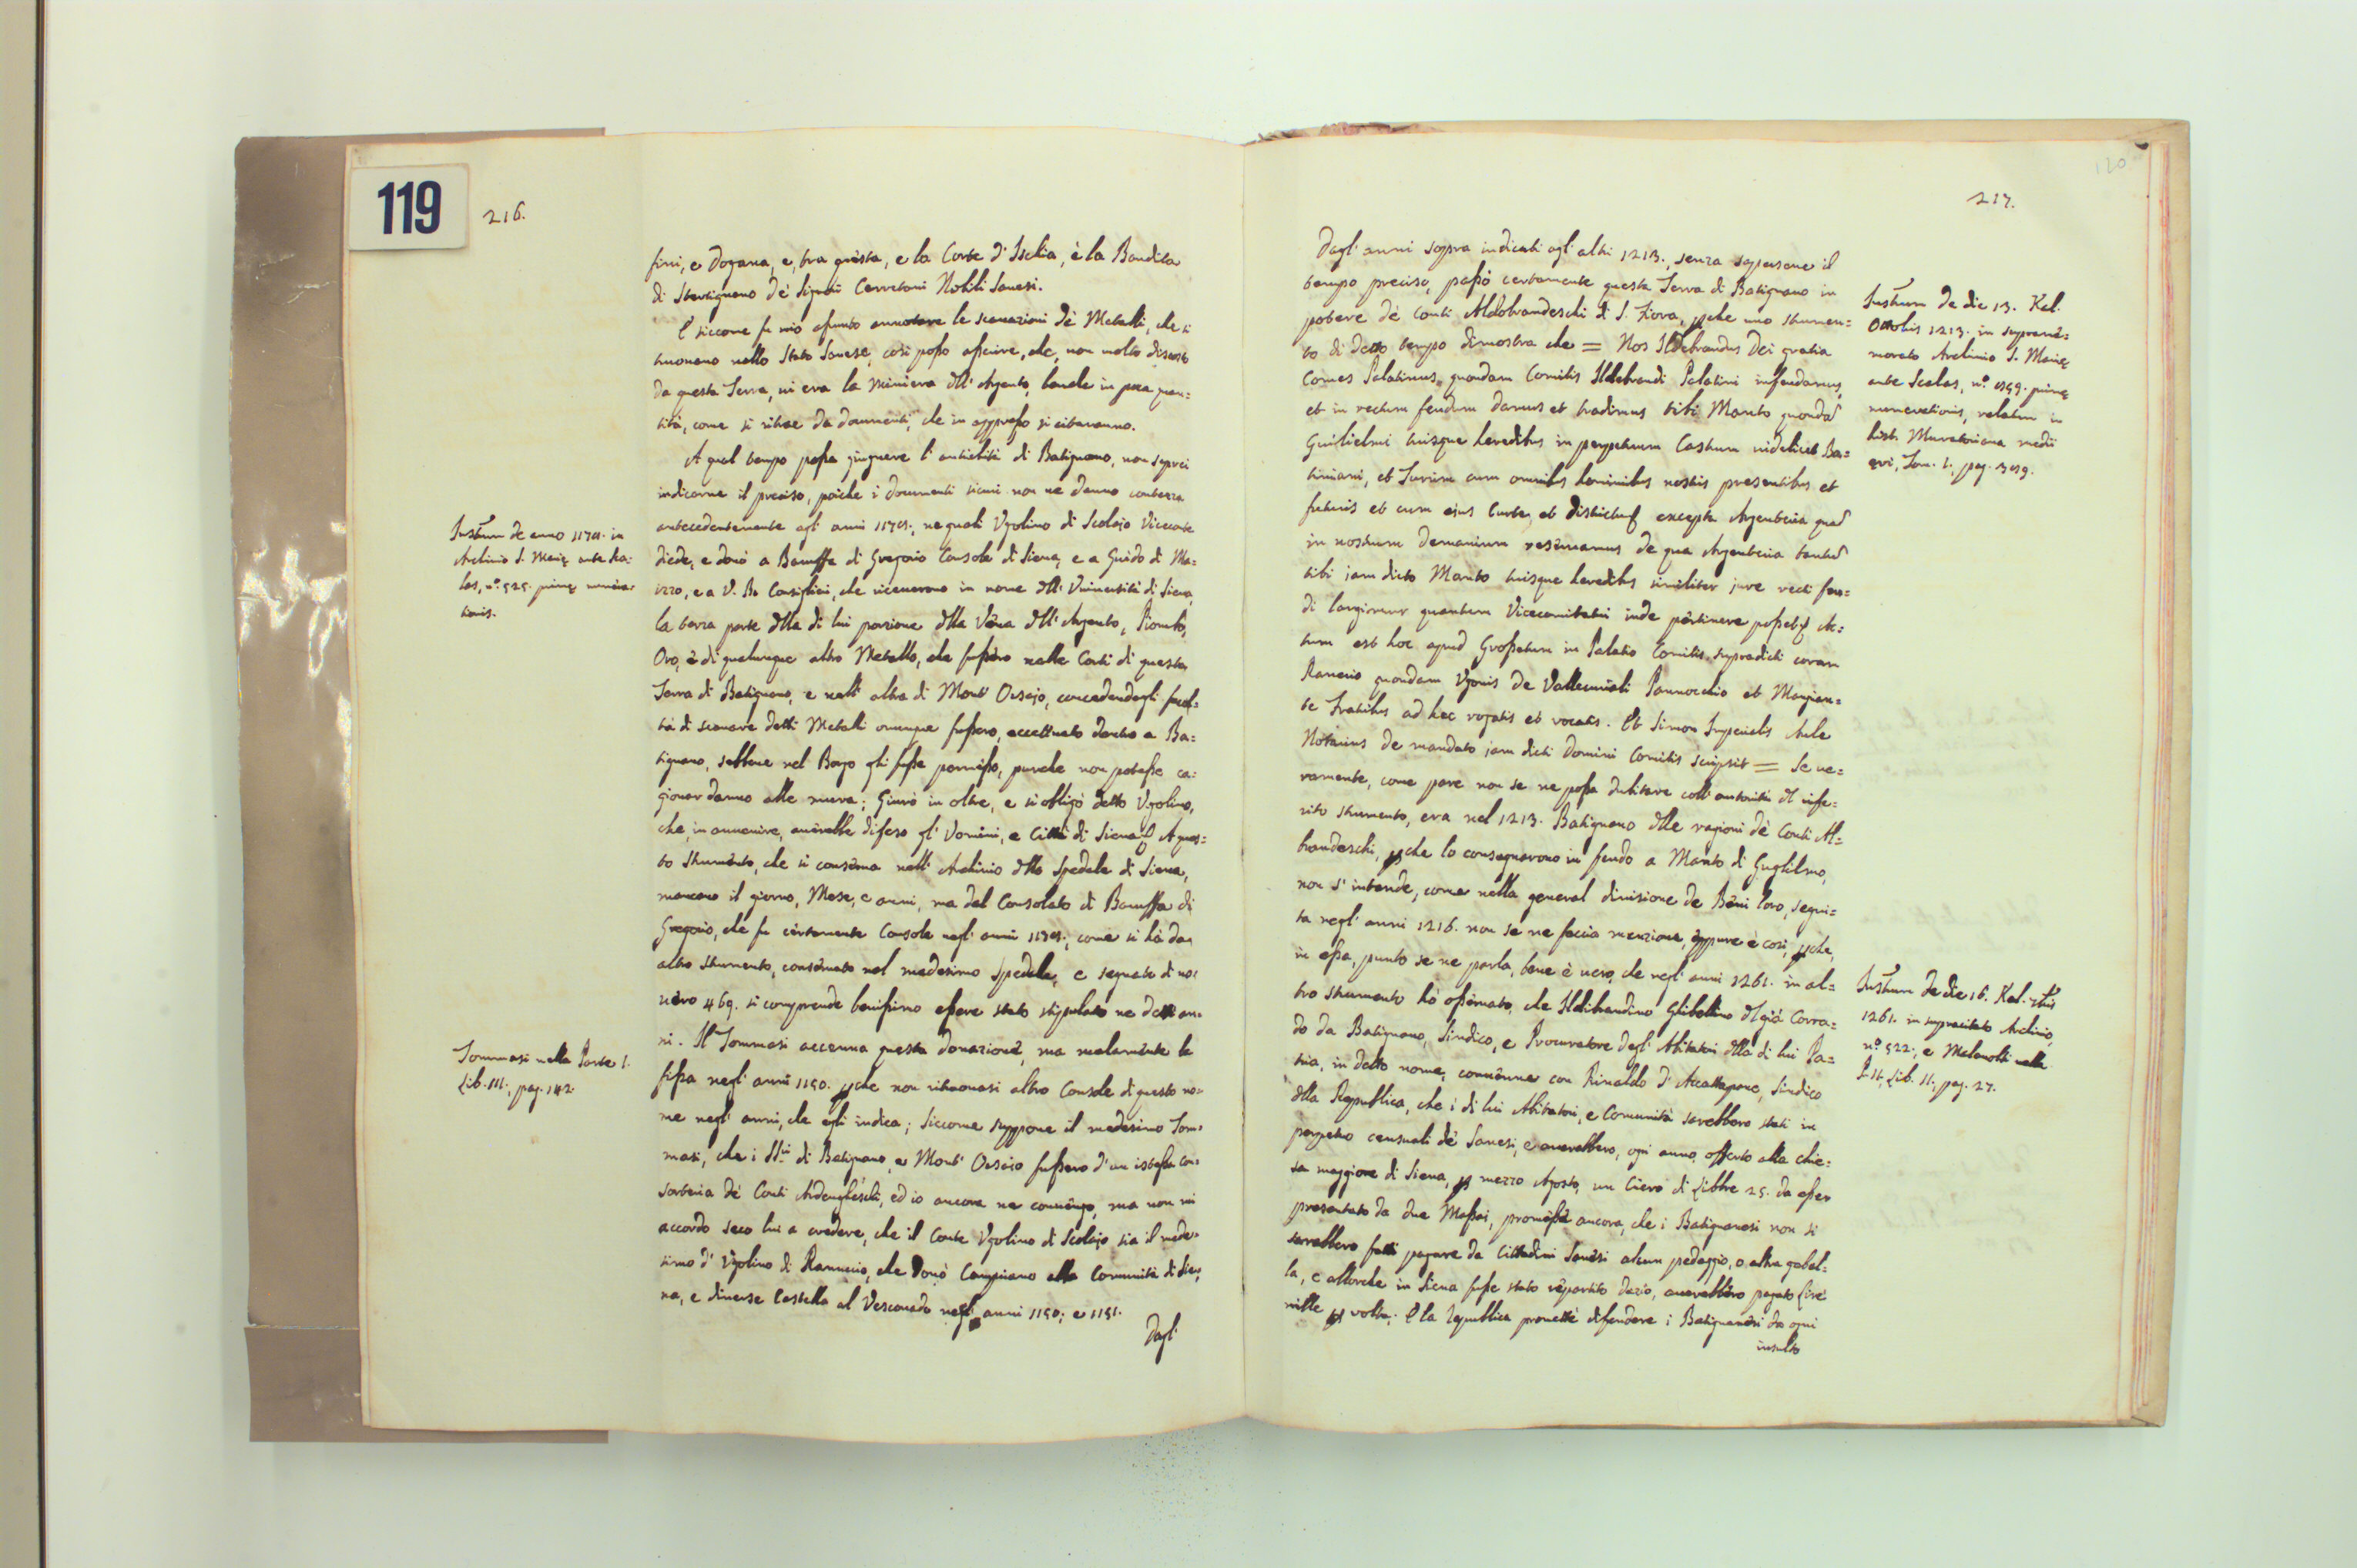 119
216.
fini, e Dogana, e, tra questa, e la Corte d'Ischia, è la Bandita
di Stertignano de' Signori Cerretani Nobili Sanesi.
E siccome fu mio assunto annotare le scavazioni de' Metalli, che si
trovono nello Stato Sanese, così posso asserire, che, non molto discosto
da questa Terra, vi era la Miniera dll' Argento, benche in poca quan=
tità, come si ritrae da documenti, che in appresso si citaranno.
A qual tempo possa giugnere l'antichità di Batignano, non saprei
indicarne il preciso, poiche i documenti sicuri non ne danno contezza
antecedentemente agl' anni 1178., ne quali Vgolino di Scolajo Visconte
diede, e donò a Baruffa di Gregorio Console di Siena, e a Guido di Ma=
izzo, e a V. Bo Consiglieri, che riceverono in nome dll' Vniversità di Siena,
la terza parte dlla di lui porzione dlla Vena dll' Argento, Piombo,
Oro, e di qualunque altro Metallo, che fussero nelle Corti di questa
Terra di Batignano, e nell' altra di Mont' Orsajo, concedendogli facol=
tà di scavare detti Metalli ovunque fussero, eccettuato dentro a Ba=
tignano, sebbene nel Borgo gli fusse permesso, purche non potesse ca=
gionar danno alle mura; Giurò in oltre, e si obligò detto Vgolino,
che, in avvenire, averebbe difeso gl' Vomini, e Città di Siena A ques=
to Strumento, che si conserva nell' Archivio dllo Spedale di Siena,
mancano il giorno, Mese, e anni, ma dal Consolato di Baruffa di
Gregorio, che fu certamente Console negl' anni 1178., come si hà da
altro Strumento, conservato nel medesimo Spedale, e segnato di nu=
mero 469. si comprende benissimo essere stato stipulato ne detti an=
ni. Il Tommasi accenna questa donazione, ma malamente la
fissa negl' anni 1150. pche non ritrovasi altro Console di questo no=
me negl' anni, che egli indica; siccome suppone il medesimo Tom=
masi, che i SSri di Batignano, e Mont' Orsajo fussero d' un istessa con=
sorteria de' Conti Ardengheschi, ed io ancora ne convengo, ma non mi
accordo seco lui a credere, che il Conte Vgolino di Scolajo sia il mede=
simo d' Vgolino di Rannuccio, che donò Campriano alla Comunità di Sie=
na, e diverse Castella al Vescovado negl' anni 1150; e 1151.
Dagl'
Instrum de anno 1178. in
Archivio S. Marię ante Sca=
las, n.° 525. primę numera
tionis.
Tommasi nella Parte I.
Lib. III., pag. 142.
120
217.
Dagl' anni sopra indicati agl' altri 1213., senza sapersene il
tempo preciso, passò certamente questa Terra di Batignano in
potere de' Conti Aldobrandeschi di S. Fiora, pche uno strumen=
to di detto tempo dimostra che = Nos Ildebrandus Dei gratia
Comes Palatinus quondam Comitis Ildebrandi Palatini infeudamus,
et in rectum feudum damus et tradimus tibi Manto quondã
Guilielmi tuisque heredibus in perpetuum Castrum videlicet Ba=
tiniani, et Turrim cum omnibus hominibus nostris presentibus et
futuris et cum ejus Curte, et districtu excepta Argenteria quã
in nostrum demanium reservamus de qua Argenteria tantũ
tibi jam dicto Manto tuisque heredibus similiter jure recti feu=
di largimur quantum Vicecomitatui inde pertinere posset Ac=
tum est hoc apud Grossetum in Palatio Comitis supradicti coram
Ranerio quondam Vgonis de Vallecuriali Pannocchio et Mangian=
te Fratribus ad hec rogatis et vocatis. Et Simon Imperialis Aule
Notarius de mandato jam dicti Domini Comitis scripsit = Se ve=
ramente, come pare non se ne possa dubitare coll' autorità dl rife=
rito Strumento, era nel 1213. Batignano dlle ragioni de' Conti Al=
brandeschi, pche lo consegnarono in feudo a Manto di Guglielmo,
non s' intende, come nella general divisione de Beni loro, segui=
ta negl' anni 1216. non se ne faccia menzione, eppure è così, pche,
in essa, punto se ne parla, bene è vero, che negl' anni 1261. in al=
tro strumento hò osservato, che Ildibrandino Ghibellino dl già Corra=
do da Batignano, Sindico, e Procuratore degl' Abitatori dlla di lui Pa=
tria, in detto nome, convenne con Rinaldo d' Accattapane, Sindico
dlla Republica, che i di lui Abitatori, e Comunità sarebbero stati in
perpetuo censuali de' Sanesi, e averebbero, ogni anno, offerto alla chie=
sa maggiore di Siena, p mezzo Agosto, un Ciero di Libbre 25. da esser
presentato da due Massai, promesse ancora, che i Batignanesi non si
sarebbero fatti pagare da Cittadini Sanesi alcun pedaggio, o altra gabel=
la, e allorche in Siena fusse stato repartito dazio, averebbero pagato Lire
mille p volta; E la Republica promette difendere i Batignanesi da ogni
insulto
Instrum de die 13. Kal.
Ottobris 1213. in supramẽ=
morato Archivio S. Marię
ante Scalas, n.° 1599. primę
numerationis, relatum in
hist. Muratoriana medii
ęvi, Tom. I., pag. 389.
Instrum de die 16. Kal.
1261. in supracitato Archivio,
n.° 522., e Malavolti nella
P. II. Lib. II., pag. 27.